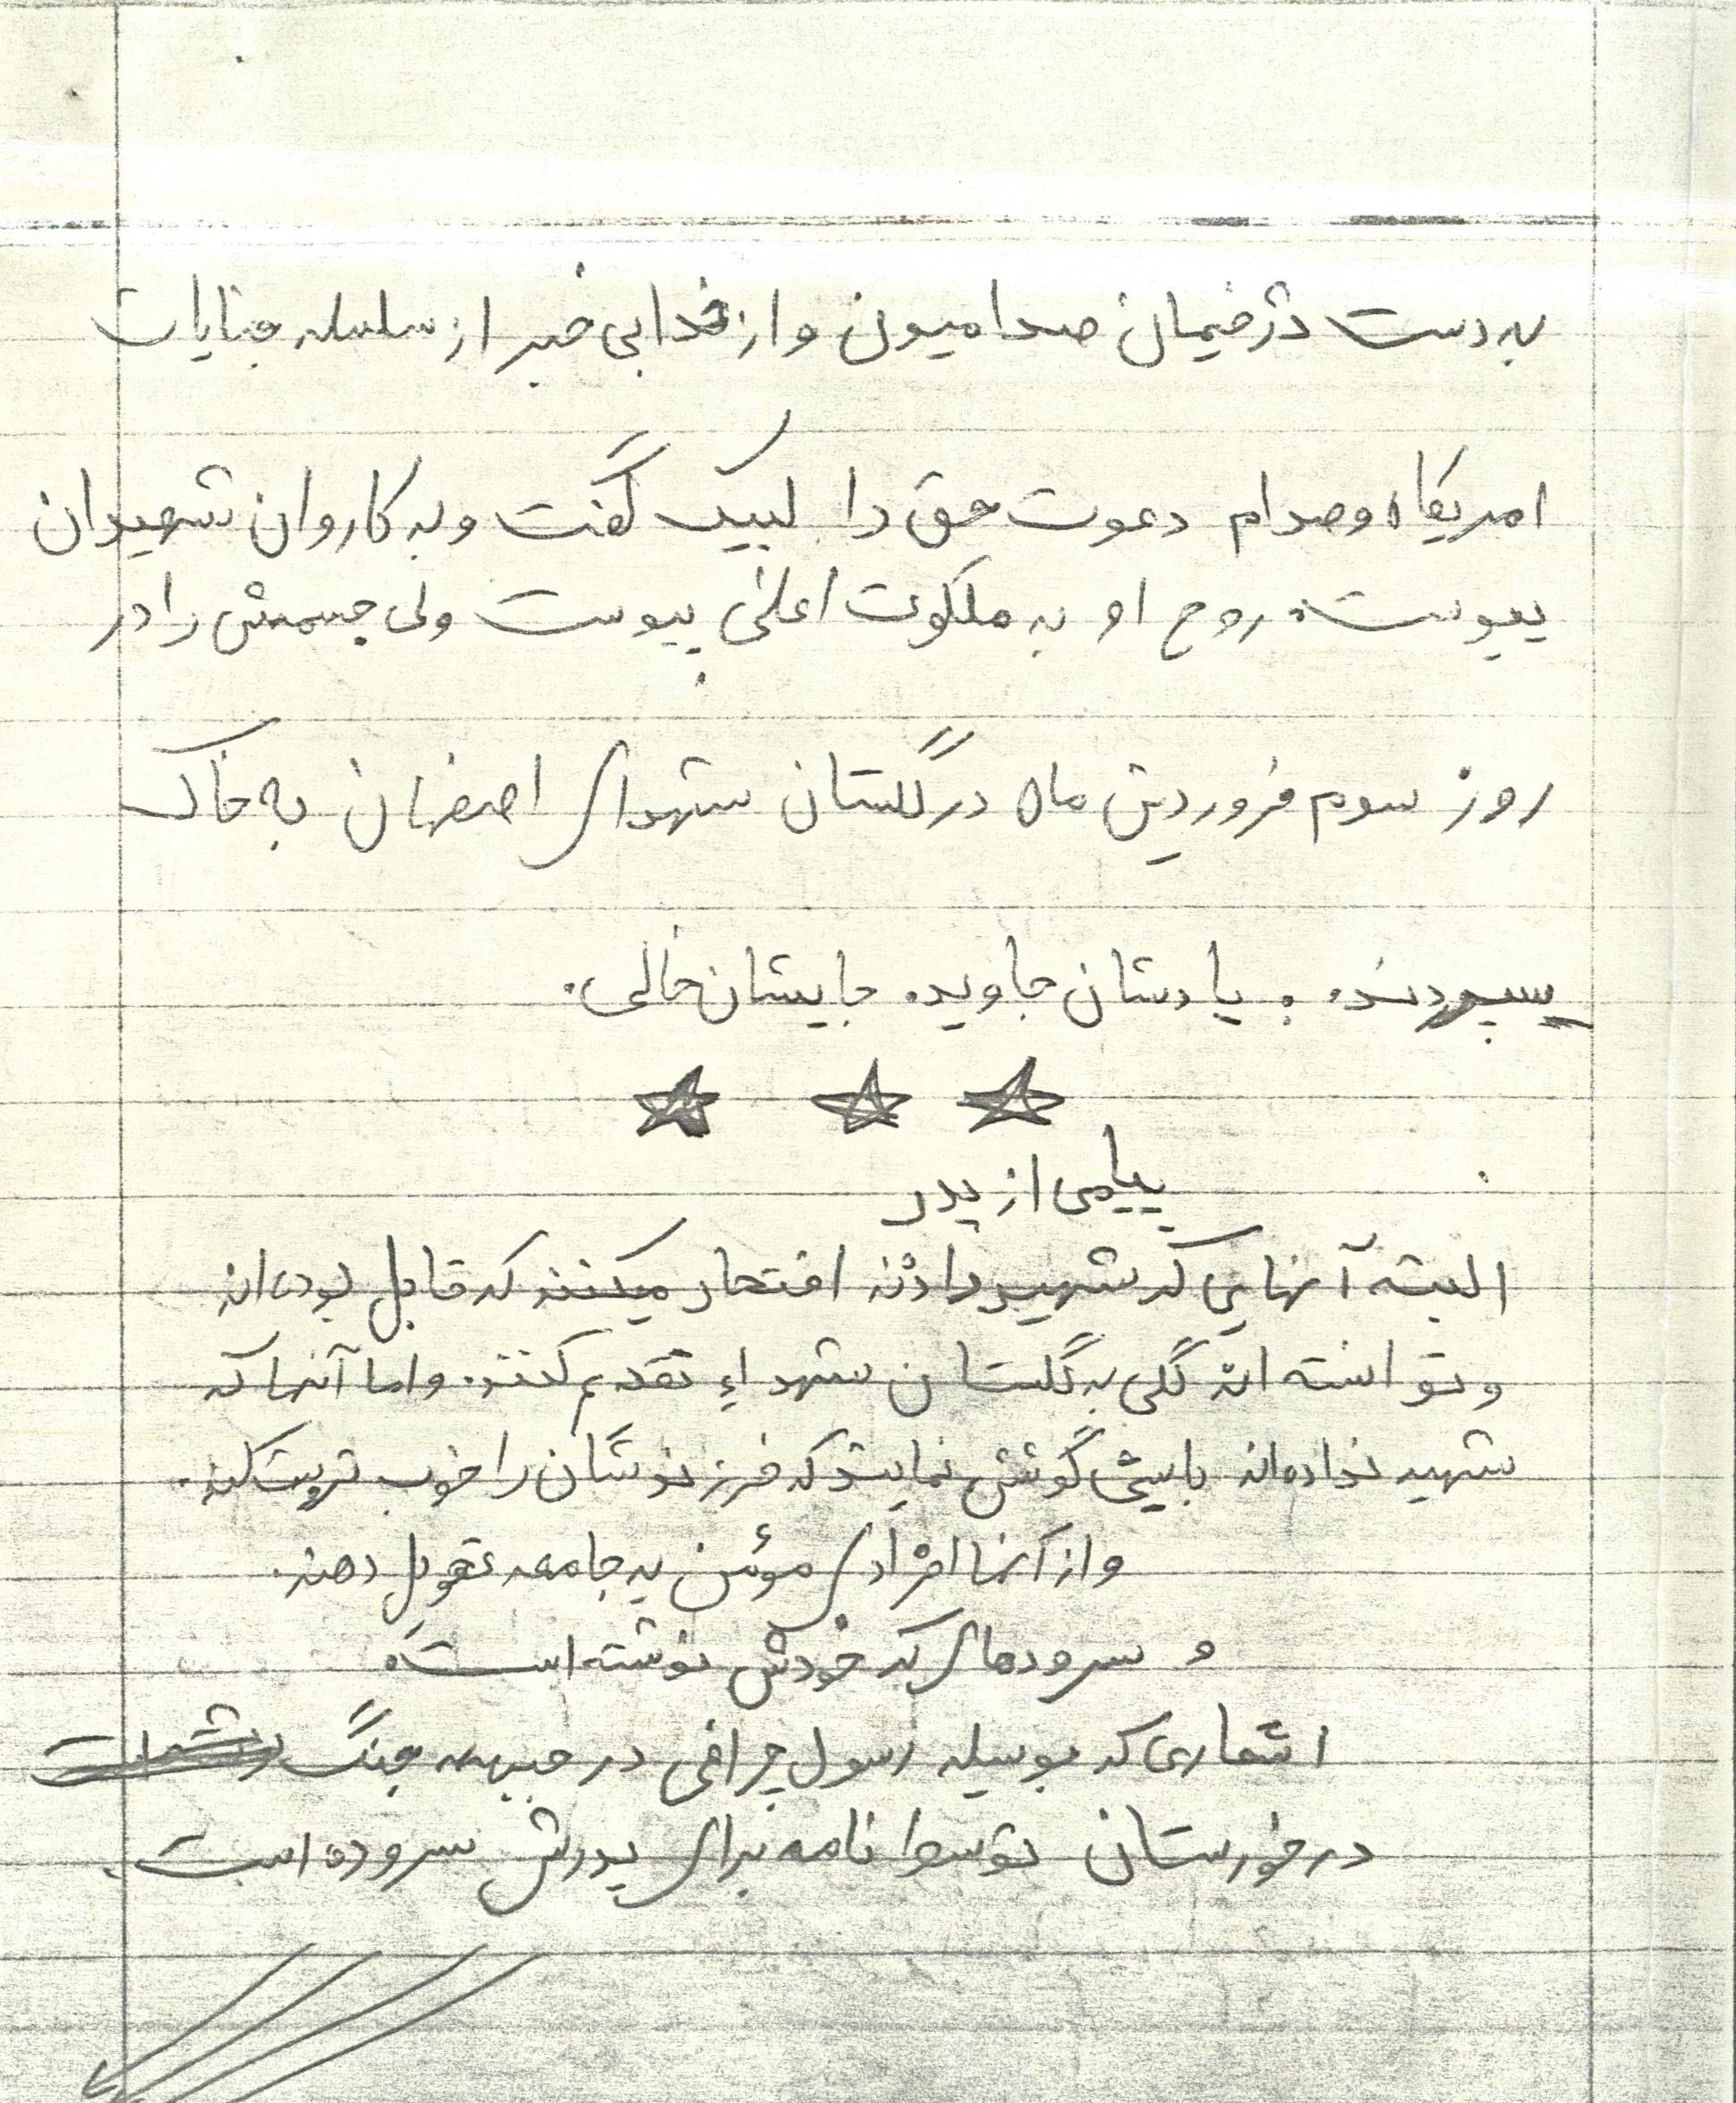 به دست دژخیمان صدامیون و از خدا بی خبر از سلسله جنایات
امریکا و صدام دعوت حق را لبیک گفت و به کاروان شهیدان
پیوست. روح او به ملکوت اعلی پیوست ولی جسمش را در
روز سوم فروردین ماه در گلستان شهدای اصفهان به خاک
سپردند. یادشان جاوید. جایشان خالی.
پیامی از پدر
البته آنهایی که شهید دادند افتخار میکنند که قابل بوده اند
و توانسته اند گلی به گلستان شهداء تقدیم کنند. و اما آنها که
شهید نداده اند بایستی کوشش نمایند که فرزندشان را خوب تربیت کنند.
و از آنها افرادی مؤمن به جامعه تحویل دهند.
و سرودهای که خودش نوشته است
اشعاری که بوسیله رسول چراغی در جبهه جنگ
در خوزستان توسط نامه برای پدرش سروده است.